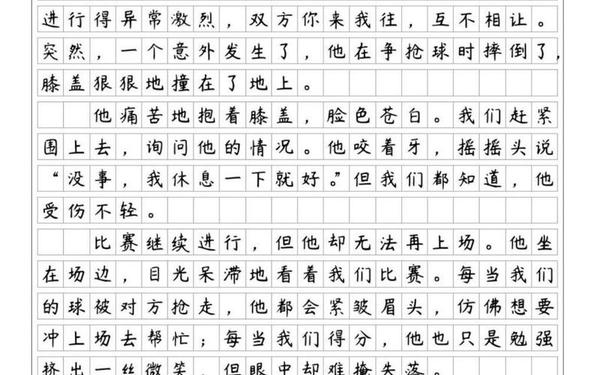 进行得异常激烈，双方你来我往，互不相让。
突然，一个意外发生了，他在争抢球时摔倒了，
膝盖狠狠地撞在了地上。
他痛苦地抱着膝盖，脸色苍白。我们赶紧
围上去，询问他的情况。他咬着牙，摇摇头说
“没事，我休息一下就好。”但我们都知道，他
受伤不轻。
比赛继续进行，但他却无法再上场。他坐
在场边，目光呆滞地看着我们比赛。每当我们
的球被对方抢走，他都会紧皱眉头，仿佛想要
冲上场去帮忙；每当我们得分，他也只是勉强
挤出一丝微笑，但眼中却难掩失落。